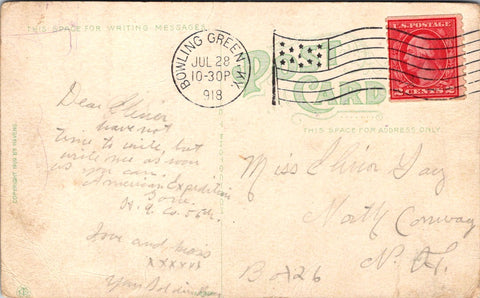 THIS SPACE FOR WRITING MESSAGES
POST
CARD
THIS SPACE FOR ADDRESS ONLY
BOWLING GREEN, KY.
JUL 28
10-30P
1918
U.S. POSTAGE
2 CENTS 2
Dear
have not
time to write, but
write me as soon
as you can.
American Expedition
H. Q. Co.
Love and kisses
xxxxxx
Your Soldier
Miss
North Conway
N. H.
Box 26